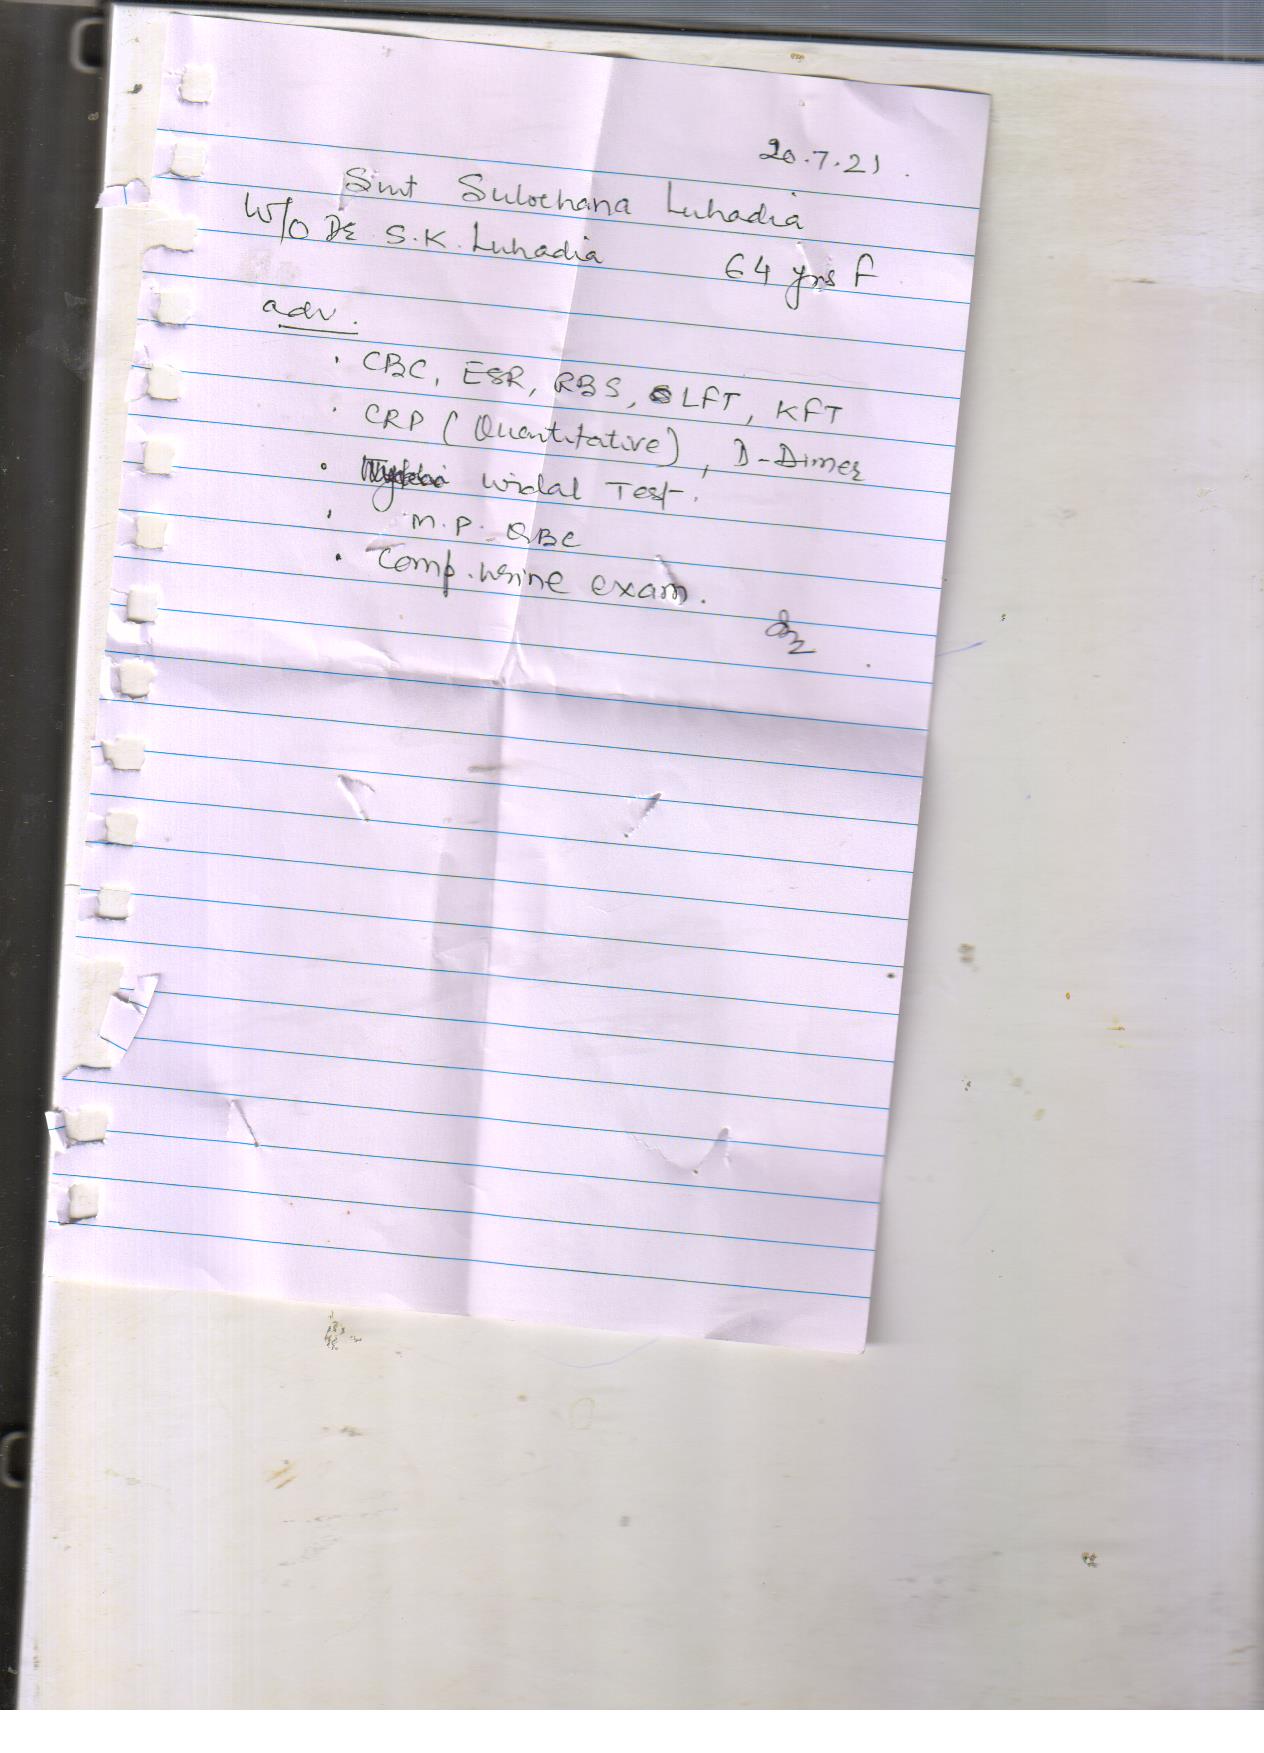 20.7.21.
Smt Sulochana Luhadia
W/o Dr S.K. Luhadia 64 yrs F
adv.
· CBC, ESR, RBS, LFT, KFT
· CRP (Quantitative), D-Dimer
· Widal Test.
· M.P. QBC
· Comp. urine exam.